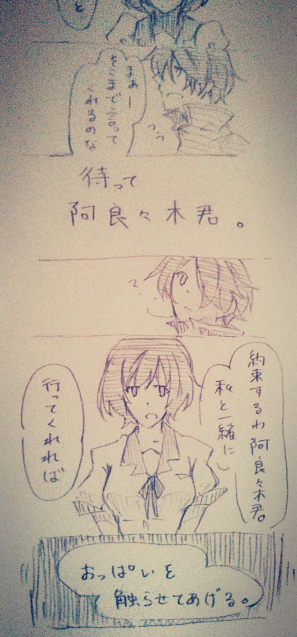 まぁー
そこまで言って
くれるのな
待って
阿良々木君。
?
約束するわ阿良々木君
私と一緒に
行ってくれれば
おっぱいを
触らせてあげる。